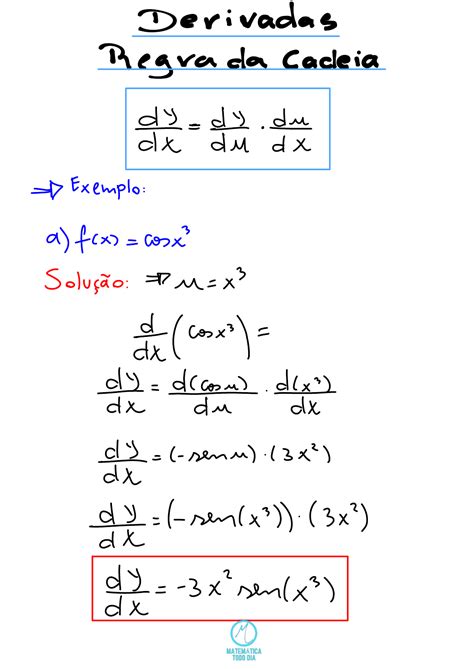 Derivadas
Regra da Cadeia
dy/dx = dy/du · du/dx
⇒ Exemplo:
a) f(x) = cosx³
Solução: ⇒ u = x³
d/dx (cosx³) =
dy/dx = d(cosu)/du · d(x³)/dx
dy/dx = (-senu) · (3x²)
dy/dx = (-sen(x³)) · (3x²)
dy/dx = -3x² sen(x³)
MATEMÁTICA
TODO DIA